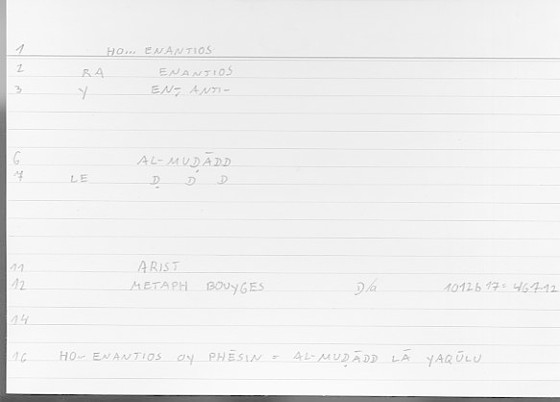 1 HO... ENANTIOS
2 RA ENANTIOS
3 Y EN, ANTI-
6 AL-MUḌĀDD
7 LE Ḍ D D
11 ARIST
12 METAPH BOUYGES D/G 1012b17= 467.12
14
16 HO- ENANTIOS OY PHĒSIN = AL-MUḌĀDD LĀ YAQŪLU